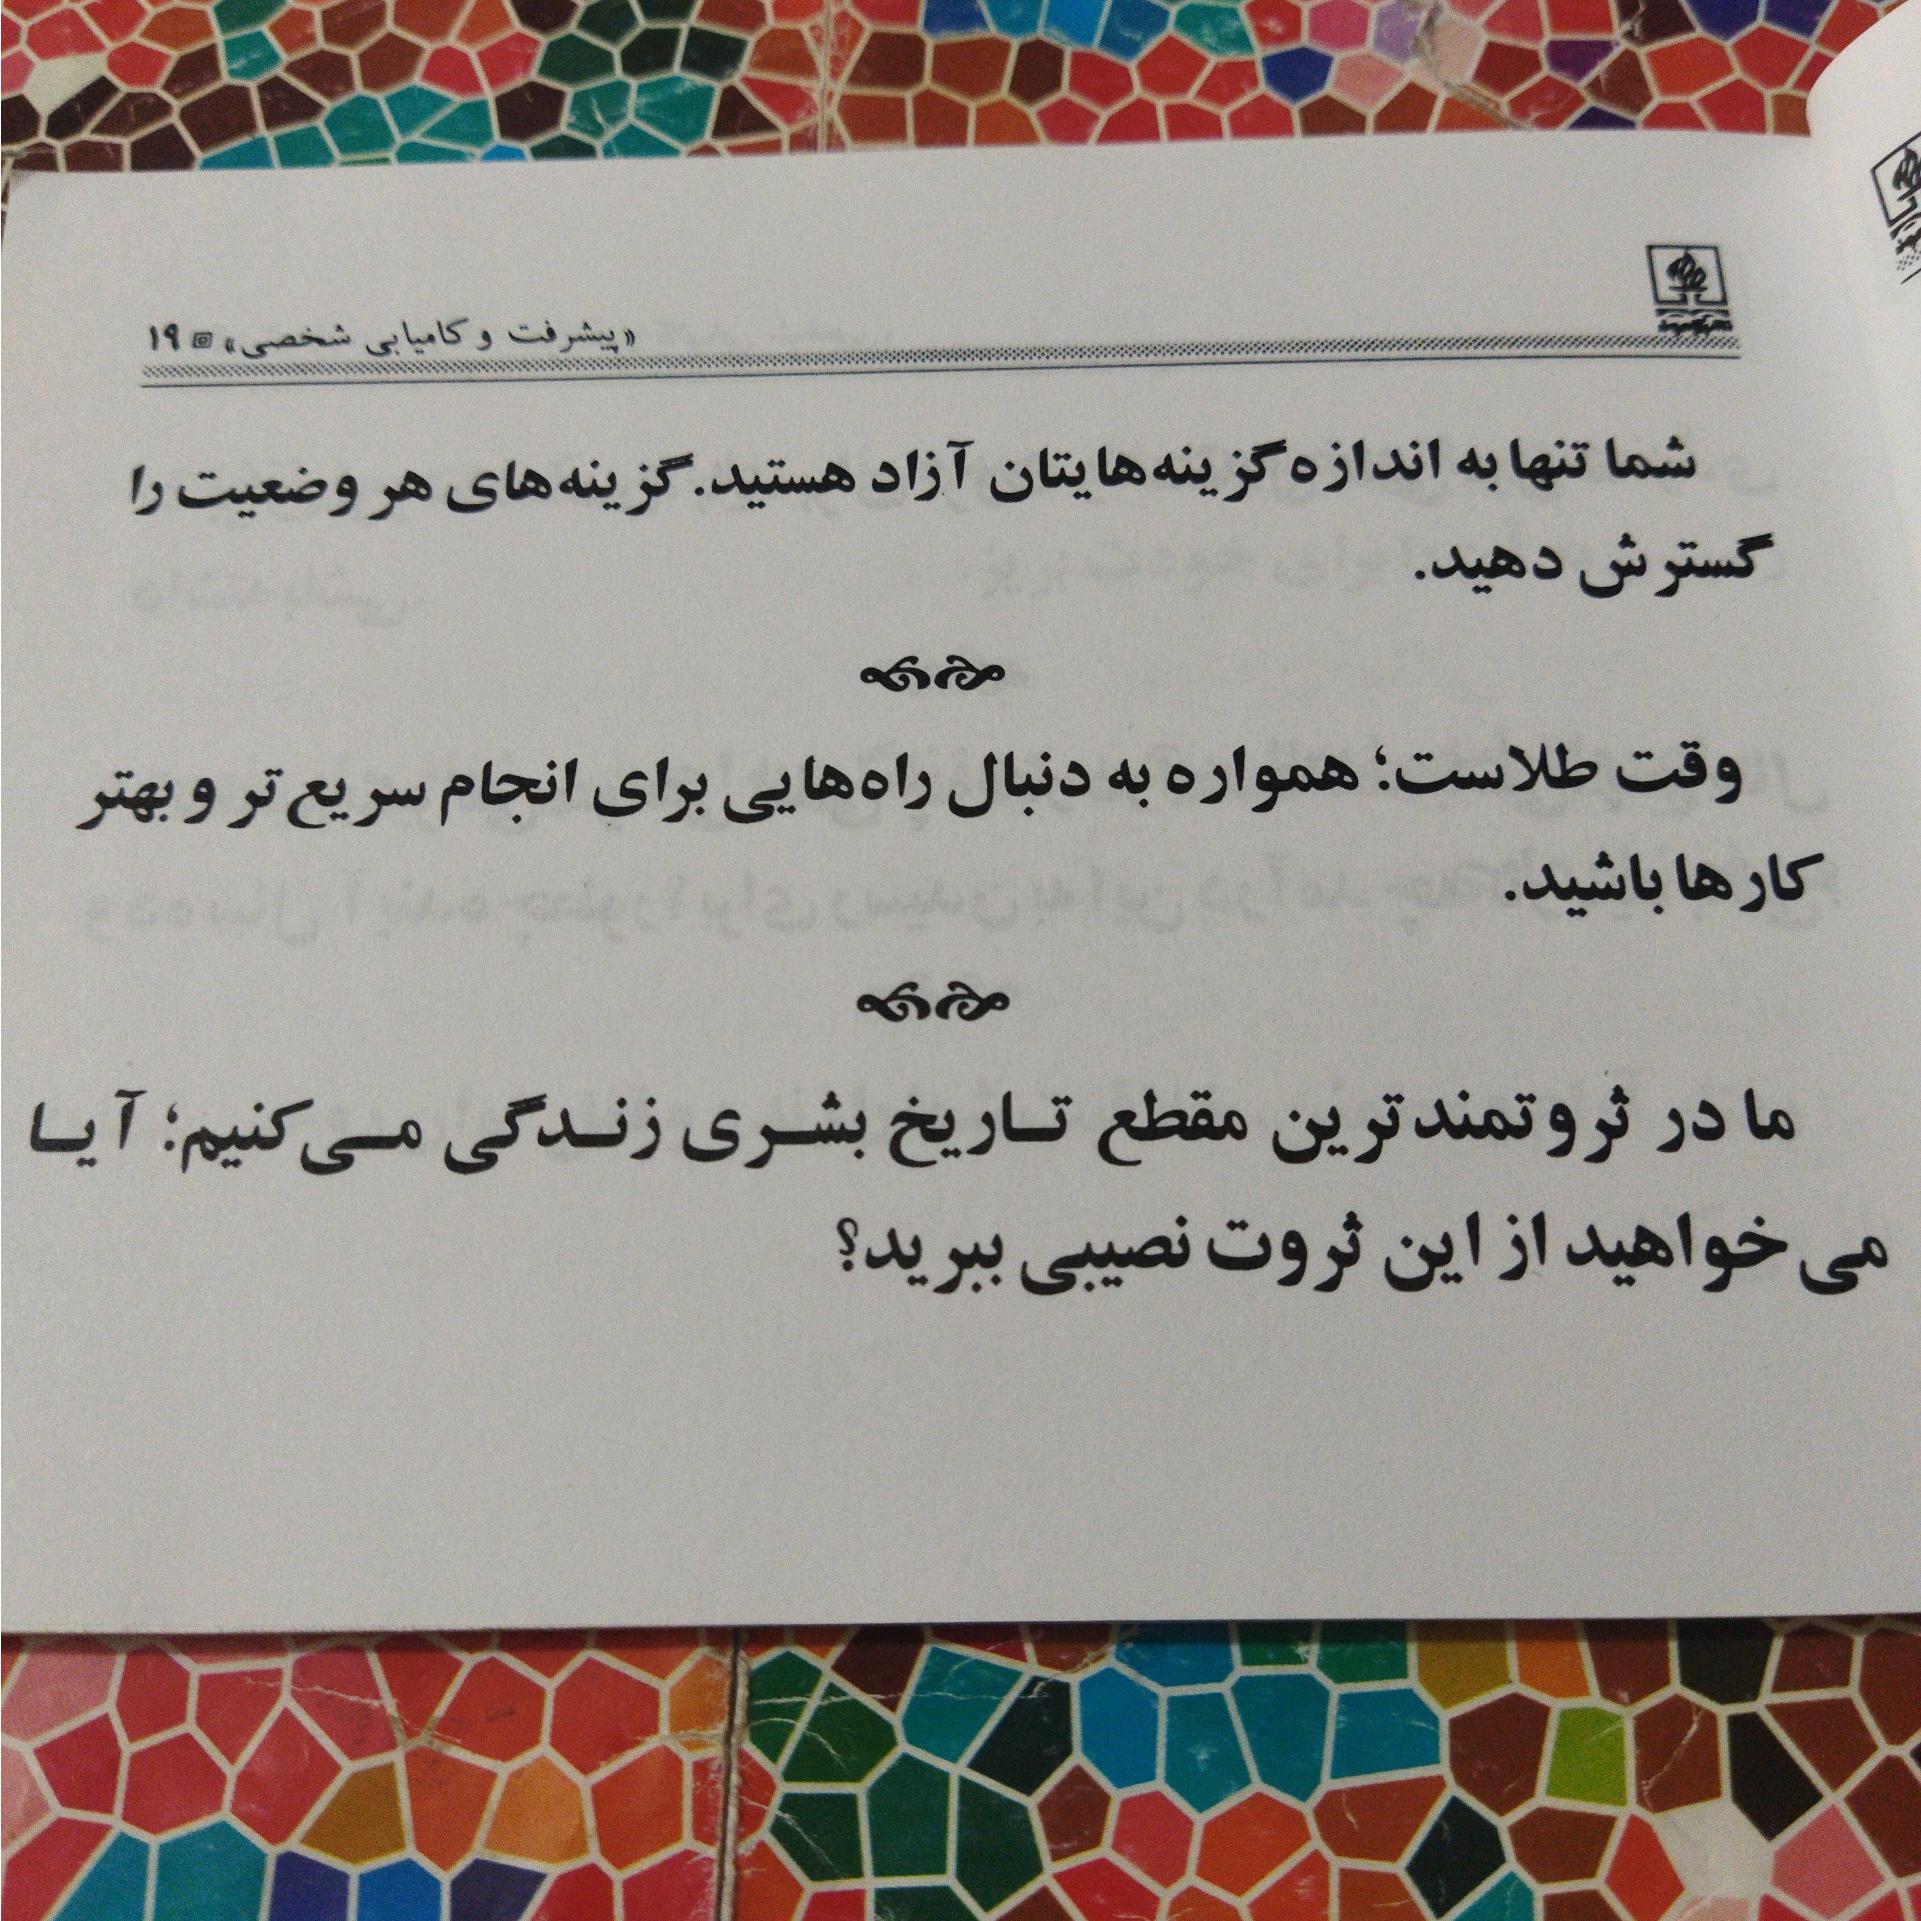 «پیشرفت و کامیابی شخصی» ۱۹
شما تنها به اندازه گزینه‌هایتان آزاد هستید. گزینه‌های هر وضعیت را
گسترش دهید.
وقت طلاست؛ همواره به دنبال راه‌هایی برای انجام سریع‌تر و بهتر
کارها باشید.
ما در ثروتمندترین مقطع تـاریخ بشـری زنـدگی مـی‌کنیم؛ آیـا
می‌خواهید از این ثروت نصیبی ببرید؟